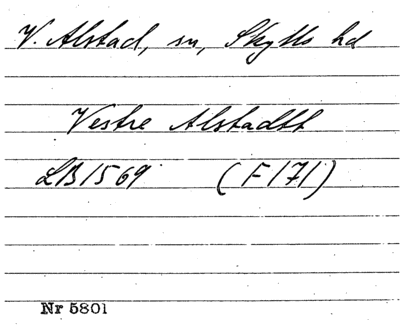 V. Alstad, sn, Skytts hd
Vestre Alstadtt
LB 1569 (F171)
Nr 5801